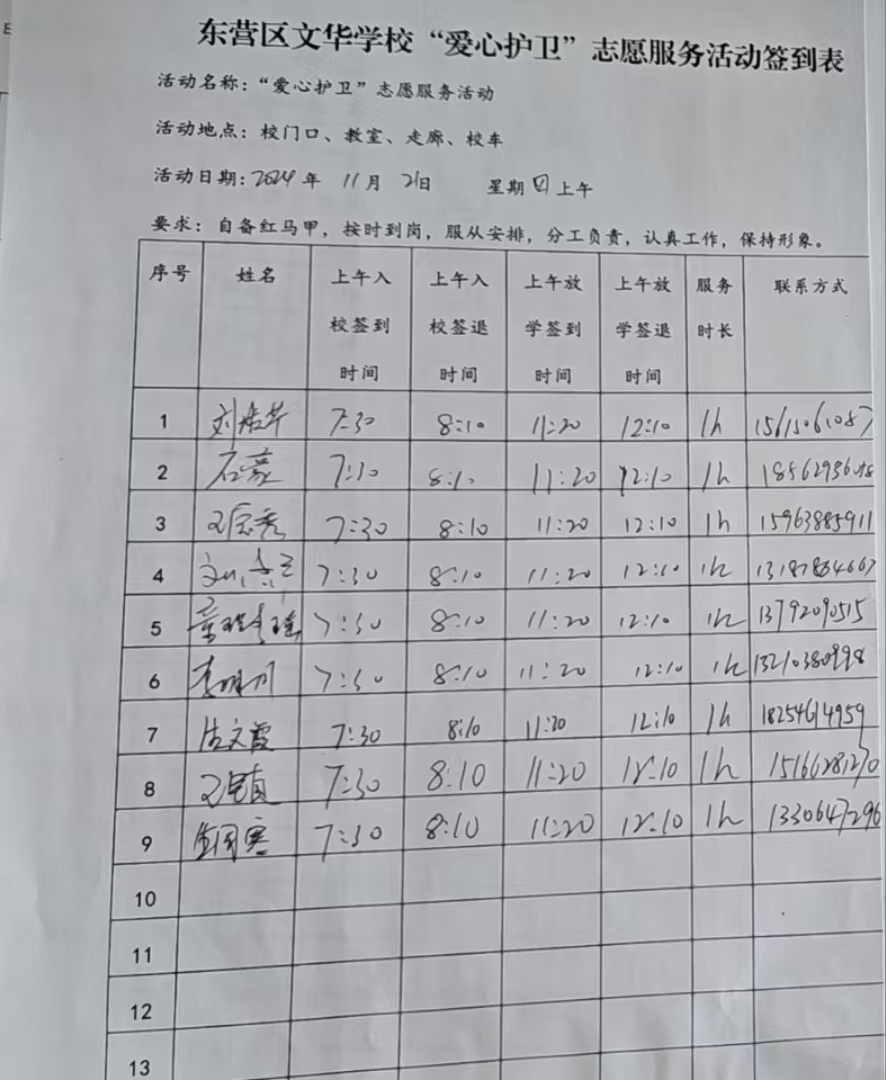 东营区文华学校“爱心护卫”志愿服务活动签到表
活动名称：“爱心护卫”志愿服务活动
活动地点：校门口、教室、走廊、校车
活动日期：2024年 11月 21日 星期四上午
要求：自备红马甲，按时到岗，服从安排，分工负责，认真工作，保持形象。
序号 姓名 上午入校签到时间 上午入校签退时间 上午放学签到时间 上午放学签退时间 服务时长 联系方式
1 7:30 8:10 11:20 12:10 1h
2 7:30 8:10 11:20 12:10 1h
3 7:30 8:10 11:20 12:10 1h 15963885911
4 7:30 8:10 11:20 12:10 1h
5 7:30 8:10 11:20 12:10 1h 13792090515
6 李明川 7:30 8:10 11:20 12:10 1h 13210380998
7 7:30 8:10 11:20 12:10 1h 18254614959
8 7:30 8:10 11:20 12:10 1h
9 7:30 8:10 11:20 12:10 1h 1330647296
10
11
12
13